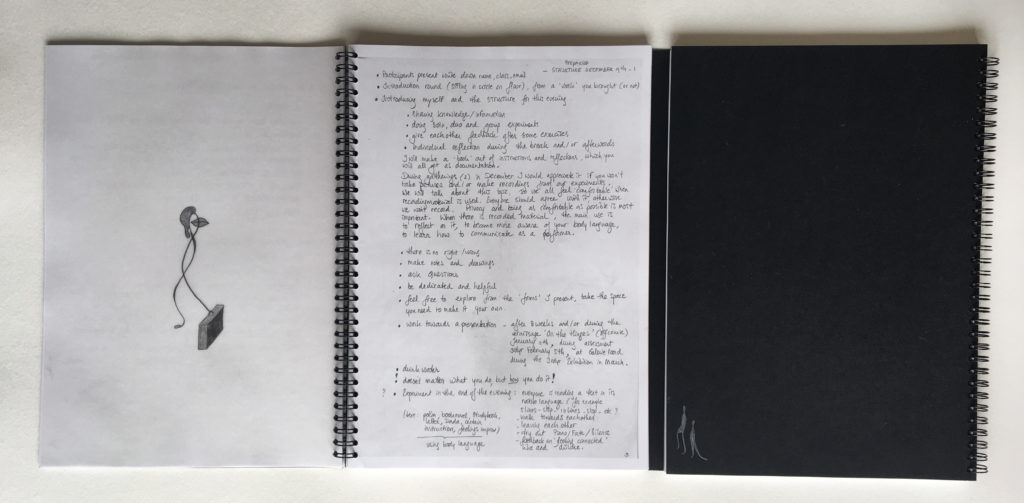 Preparing
- STRUCTURE DECEMBER 9th - 1
• Participants present write down name, class, email
• Introduction round (sitting in circle on floor), from a 'work' you brought (or not)
• Introducing myself and the structure for this evening
• sharing knowledge/information
• doing solo, duo and group experiments
• give each other feedback after some exercises
• individual reflection during the break and/or afterwards
I will make a 'book' out of instructions and reflections, which you
will all get as documentation.
During gatherings (2) in December I would appreciate it if you won't
take pictures and/or make recordings from our experiments.
We will talk about this use, so we all feel comfortable when
recording material is used. Everyone should agree with it otherwise
we won't record. Privacy and being as comfortable as possible is most
important. When there is recorded material, the main use is
to reflect on it, to become more aware of your body language,
to learn how to communicate as a performer.
• there is no right/wrong
• make notes and drawings
• ask questions
• be dedicated and helpful
• feel free to explore from the 'forms' I present, take the space
you need to make it your own.
• work towards a presentation - after 8 weeks and/or during the
'On the
January 5th, during assessment
February 5th, at
during the Exhibition in March.
• drink water
! doesn't matter what you do, but how you do it!
? • Experiment in the end of the evening: everyone is reading a text in its
native language
(text: poem, booknovel, studybook,
letter,
instruction, feelings
using body language
walk towards each other
- leaving each other
- try out Piano/Forte/Silence
- feedback on 'feeling connected'
like and dislike.